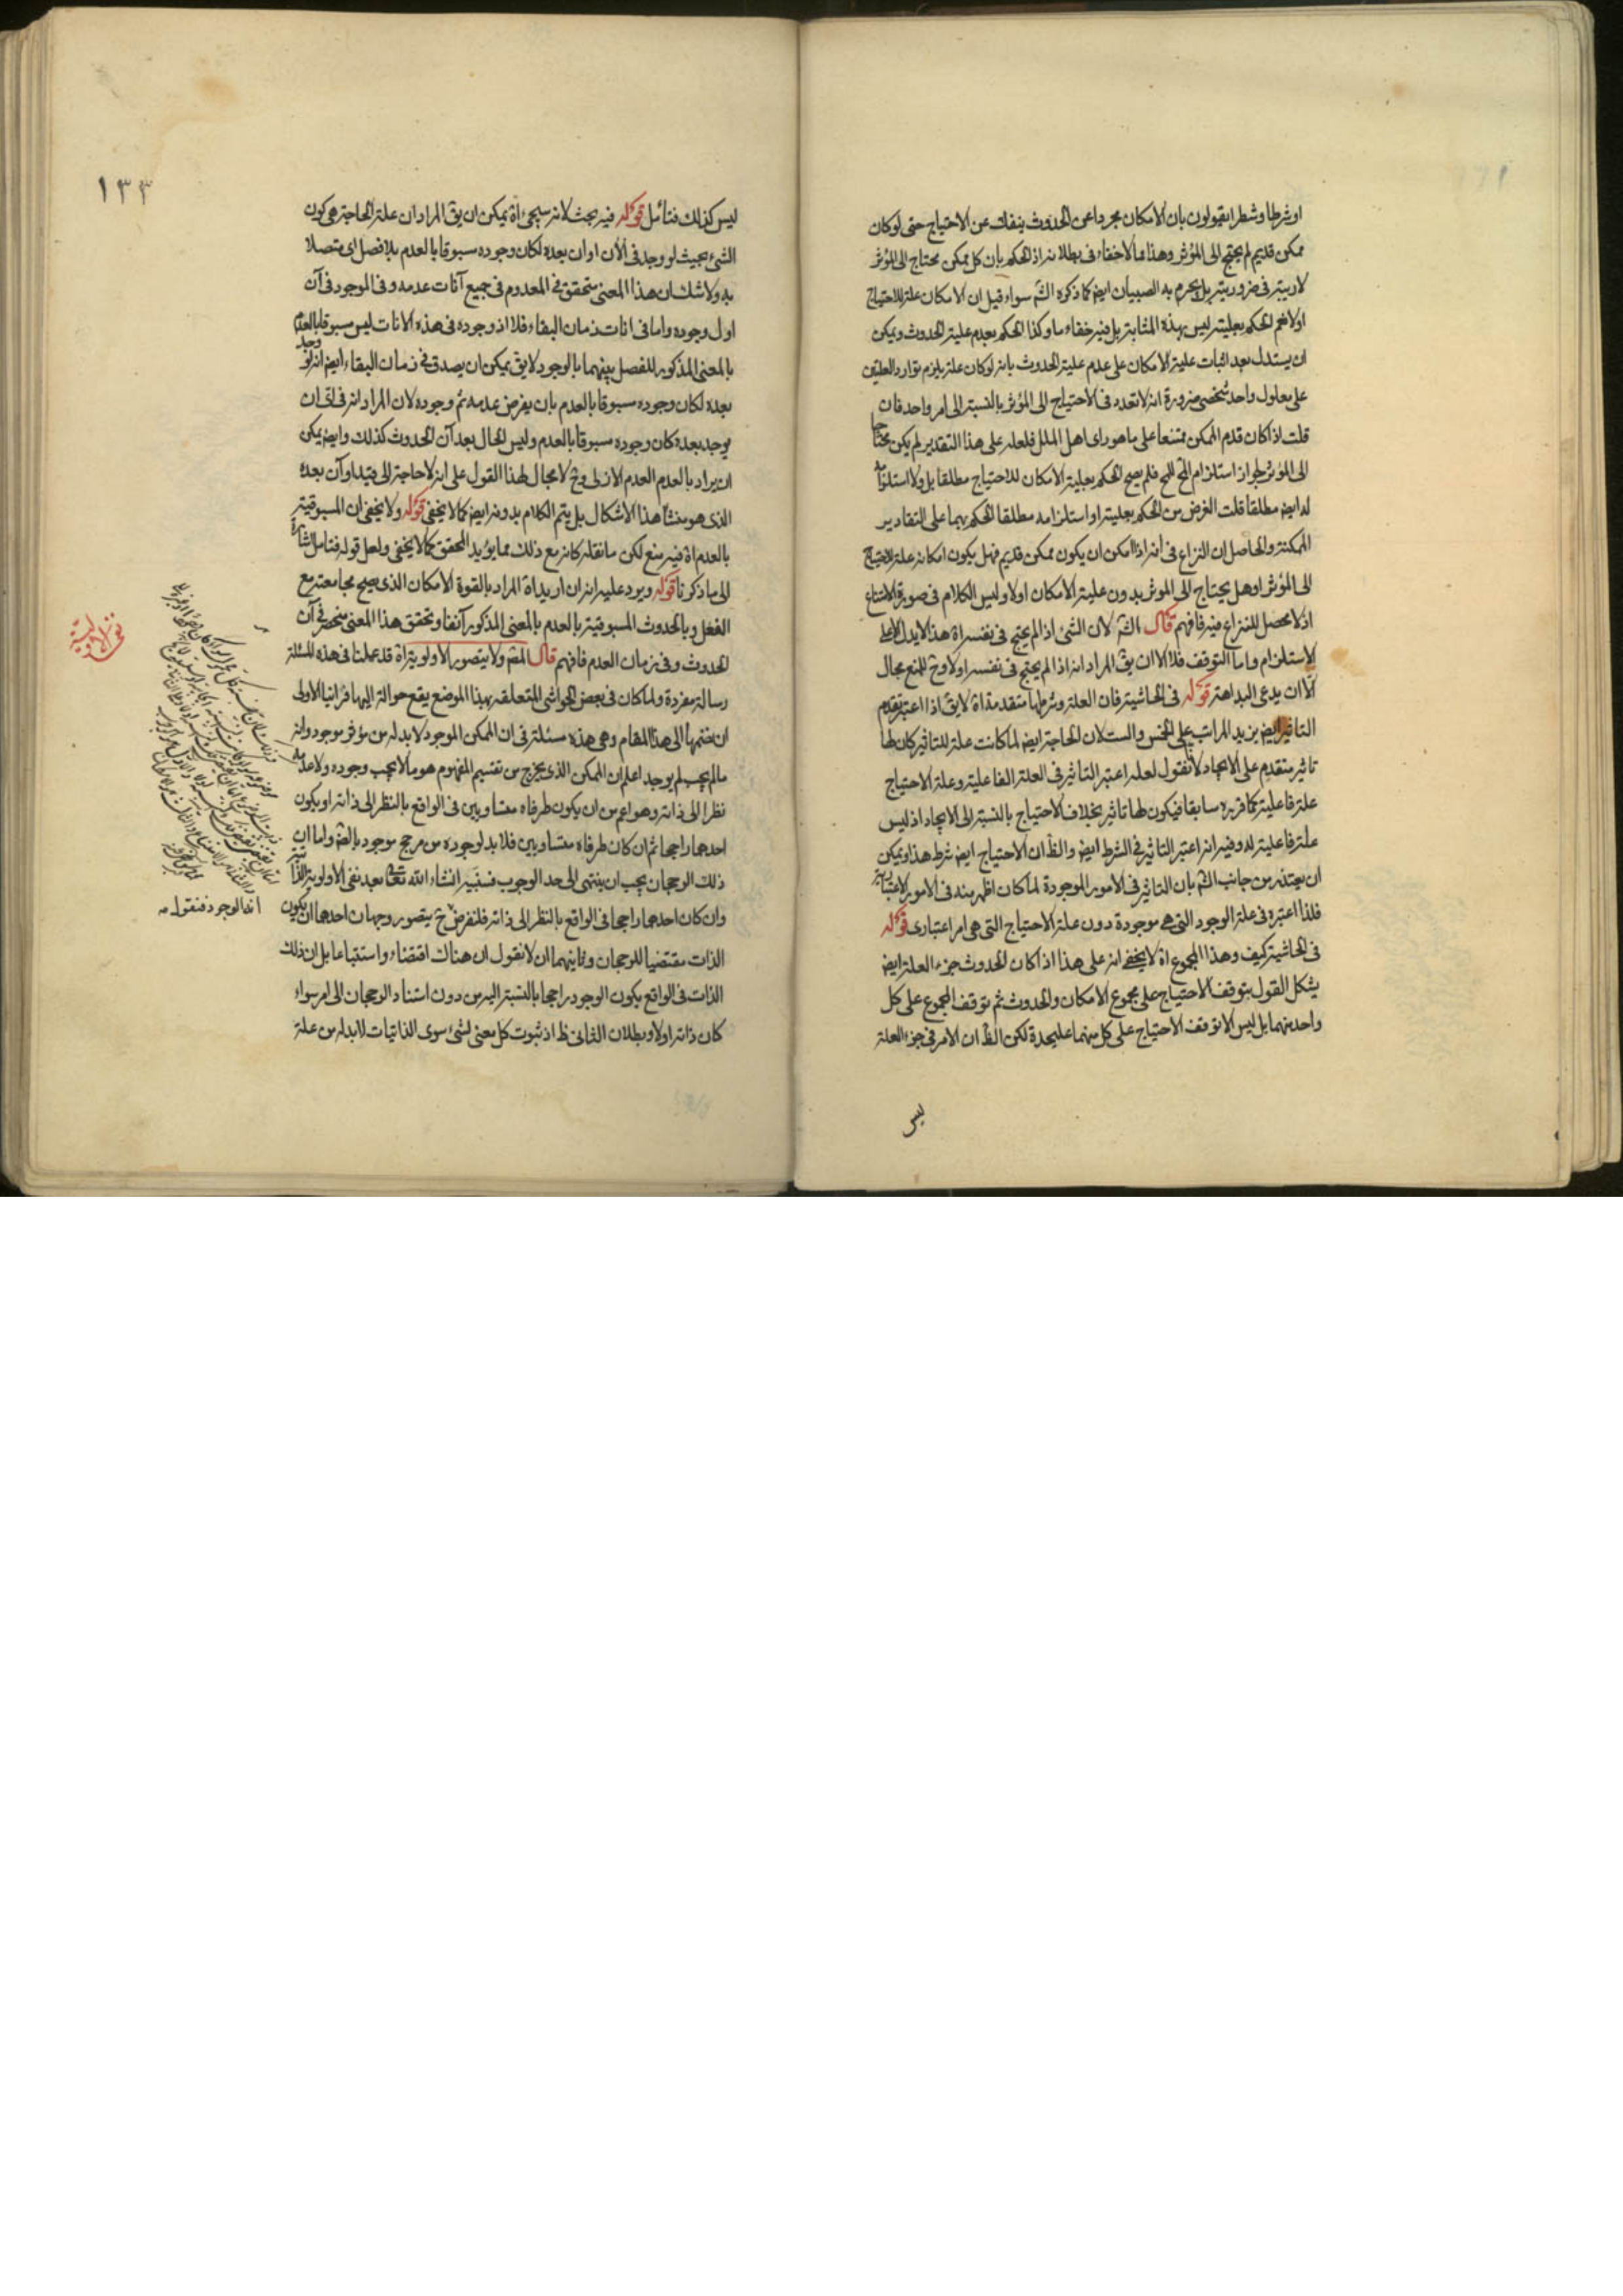 او شرطا و شطرا يقولون بان الامكان مجردا عن الحدوث ينفك عن الاحتياج حتى لو كان
ممكن قديم لم يحتج الى المؤثر وهذا مما لا خفاء فى بطلانه اذ الحكم بان كل ممكن يحتاج الى المؤثر
لا ريبة فى ضروريته بل يجزم به الصبيان ايض كما ذكره الشم سواء قيل ان الامكان علة للاحتياج
اولا نعم الحكم بعليته ليس بهذه المثابة بل فيه خفاء ما وكذا الحكم بعدم علية الحدوث ويمكن
ان يستدل بعد اثبات علية الامكان على عدم علية الحدوث بانه لو كان علة يلزم توارد العلتين
على معلول واحد شخصى ضرورة انه لا تعدد فى الاحتياج الى المؤثر بالنسبة الى امر واحد فان
قلت اذا كان قدم الممكن ممتنعا على ما هو راى اهل الملل فلعله على هذا التقدير لم يكن محتاجا
الى المؤثر لجواز استلزام المح للمح فلم يصح الحكم بعلية الامكان للاحتياج مطلقا بل ولا استلزامه
له ايض مطلقا قلت الغرض من الحكم بعليته او استلزامه مطلقا الحكم بهما على التقادير
الممكنة والحاصل ان النزاع فى انه اذا امكن ان يكون ممكن قديم فهل يكون امكانه علة لاحتياجه
الى المؤثر او هل يحتاج الى الموثر بدون علية الامكان اولا وليس الكلام فى صورة الامتناع
اذ لا محصل للنزاع فيه فافهم قال الشم لان الشئ اذا لم يحتج فى نفسه اه هذا لا يدل الا على
الاستلزام واما التوقف فلا الا ان يق المراد انه اذا لم يحتج فى نفسه اولا وح للمنع مجال
الا ان يدعى البداهة قوله فى الحاشية فان العلة وشرطها متقدمة اه لا يق اذا اعتبر تقدم
التاثير ايض يزيد المراتب على الخمس والست لان الحاجة ايض لما كانت علة للتاثير كان لها
تاثير متقدم على الايجاد لانا نقول لعله اعتبر التاثير فى العلة الفاعلية وعلة الاحتياج
علة فاعلية كما قرره سابقا فيكون لها تاثير بخلاف الاحتياج بالنسبة الى الايجاد اذ ليس
علة فاعلية له وفيه انه اعتبر التاثير فى الشرط ايض والظ ان الاحتياج ايض شرط هذا ويمكن
ان يعتذر من جانب الشم بان التاثير فى الامور الموجودة لما كان اظهر منه فى الامور الاعتبارية
فلذا اعتبره فى علة الوجود التى هى موجودة دون علة الاحتياج التى هى امر اعتبارى قوله
فى الحاشية كيف وهذا المجموع اه لا يخفى انه على هذا اذا كان الحدوث جزء العلة ايض
يشكل القول بتوقف الاحتياج على مجموع الامكان والحدوث ثم توقف المجموع على كل
واحد منهما بل ليس الا توقف الاحتياج على كل منهما عليحدة لكن الظ ان الامر فى جزء العلة
ليس
١٣٣
ليس كذلك فتامل قوله فيه بحث لانه سيجئ اه يمكن ان يق المراد ان علة الحاجة هى كون
الشئ بحيث لو وجد فى الآن او آن بعده لكان وجوده مسبوقا بالعدم بلا فصل اى متصلا
به ولا شك ان هذا المعنى متحقق فى المعدوم فى جميع آنات عدمه وفى الموجود فى آن
اول وجوده واما فى انات زمان البقاء فلا اذ وجوده فى هذه الانات ليس مسبوقا بالعدم
بالمعنى المذكور للفصل بينهما بالوجود لا يق يمكن ان يصدق فى زمان البقاء ايض انه لو وجد
بعده لكان وجوده مسبوقا بالعدم بان يفرض عدمه ثم وجوده لان المراد انه فى اى ان
يوجد بعده كان وجوده مسبوقا بالعدم وليس الحال بعد آن الحدوث كذلك وايض يمكن
ان يراد بالعدم العدم الازلى وح لا مجال لهذا القول على انه لا حاجة الى قيد او آن بعده
الذى هو منشا هذا الاشكال بل يتم الكلام بدونه ايض كما لا يخفى قوله ولا يخفى ان المسبوقية
بالعدم اه فيه منع لكن ما نقله كانه مع ذلك مما يؤيد المحقق كما لا يخفى ولعل قوله فتامل اشارة
الى ما ذكرنا قوله ويرد عليه انه ان اريد اه المراد بالقوة الامكان الذى يصح مجامعته مع
الفعل وبالحدوث المسبوقية بالعدم بالمعنى المذكور آنفا وتحقق هذا المعنى منحصر فى آن
الحدوث وفى زمان العدم فافهم قال المص ولا يتصور الاولوية اه قد عملنا فى هذه المسئلة
رسالة مفردة ولما كان فى بعض الحواشى المتعلقة بهذا الموضع يقع حوالة اليها فراينا الاولى
ان نضمها الى هذا المقام وهى هذه مسئلة فى ان الممكن الموجود لا بد له من مؤثر موجود وانه
ما لم يجب لم يوجد اعلم ان الممكن الذى يخرج من تقسيم المفهوم هو ما لا يجب وجوده ولا عدمه
نظرا الى ذاته وهو اعم من ان يكون طرفاه متساويين فى الواقع بالنظر الى ذاته او يكون
احدهما راجحا ثم ان كان طرفاه متساويين فلا بد لوجوده من مرجح موجود بالضرورة واما ان
ذلك الرجحان يجب ان ينتهى الى حد الوجوب فسنبين انشاء الله تعالى بعد نفى الاولوية الذاتية
وان كان احدهما راجحا فى الواقع بالنظر الى ذاته فلنفرض ح يتصور وجهان احدهما ان يكون
الذات مقتضيا للرجحان وثانيهما ان لا نقول ان هناك اقتضاء واستتباعا بل ان ذلك
الذات فى الواقع يكون الوجود راجحا بالنسبة اليه من دون استناد الرجحان الى امر سواء
كان ذاته اولا وبطلان الثانى ظ اذ ثبوت كل معنى لشئ سوى الذاتيات لا بد له من علة
نفى الاولوية
انه الوجود فنقول